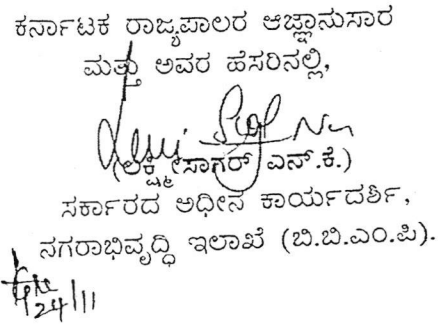 ಕರ್ನಾಟಕ ರಾಜ್ಯಪಾಲರ ಆಜ್ಞಾನುಸಾರ
ಮತ್ತು ಅವರ ಹೆಸರಿನಲ್ಲಿ,
(ಲಕ್ಷ್ಮೀಸಾಗರ್ ಎನ್.ಕೆ.)
ಸರ್ಕಾರದ ಅಧೀನ ಕಾರ್ಯದರ್ಶಿ,
ನಗರಾಭಿವೃದ್ಧಿ ಇಲಾಖೆ (ಬಿ.ಬಿ.ಎಂ.ಪಿ).
24/11